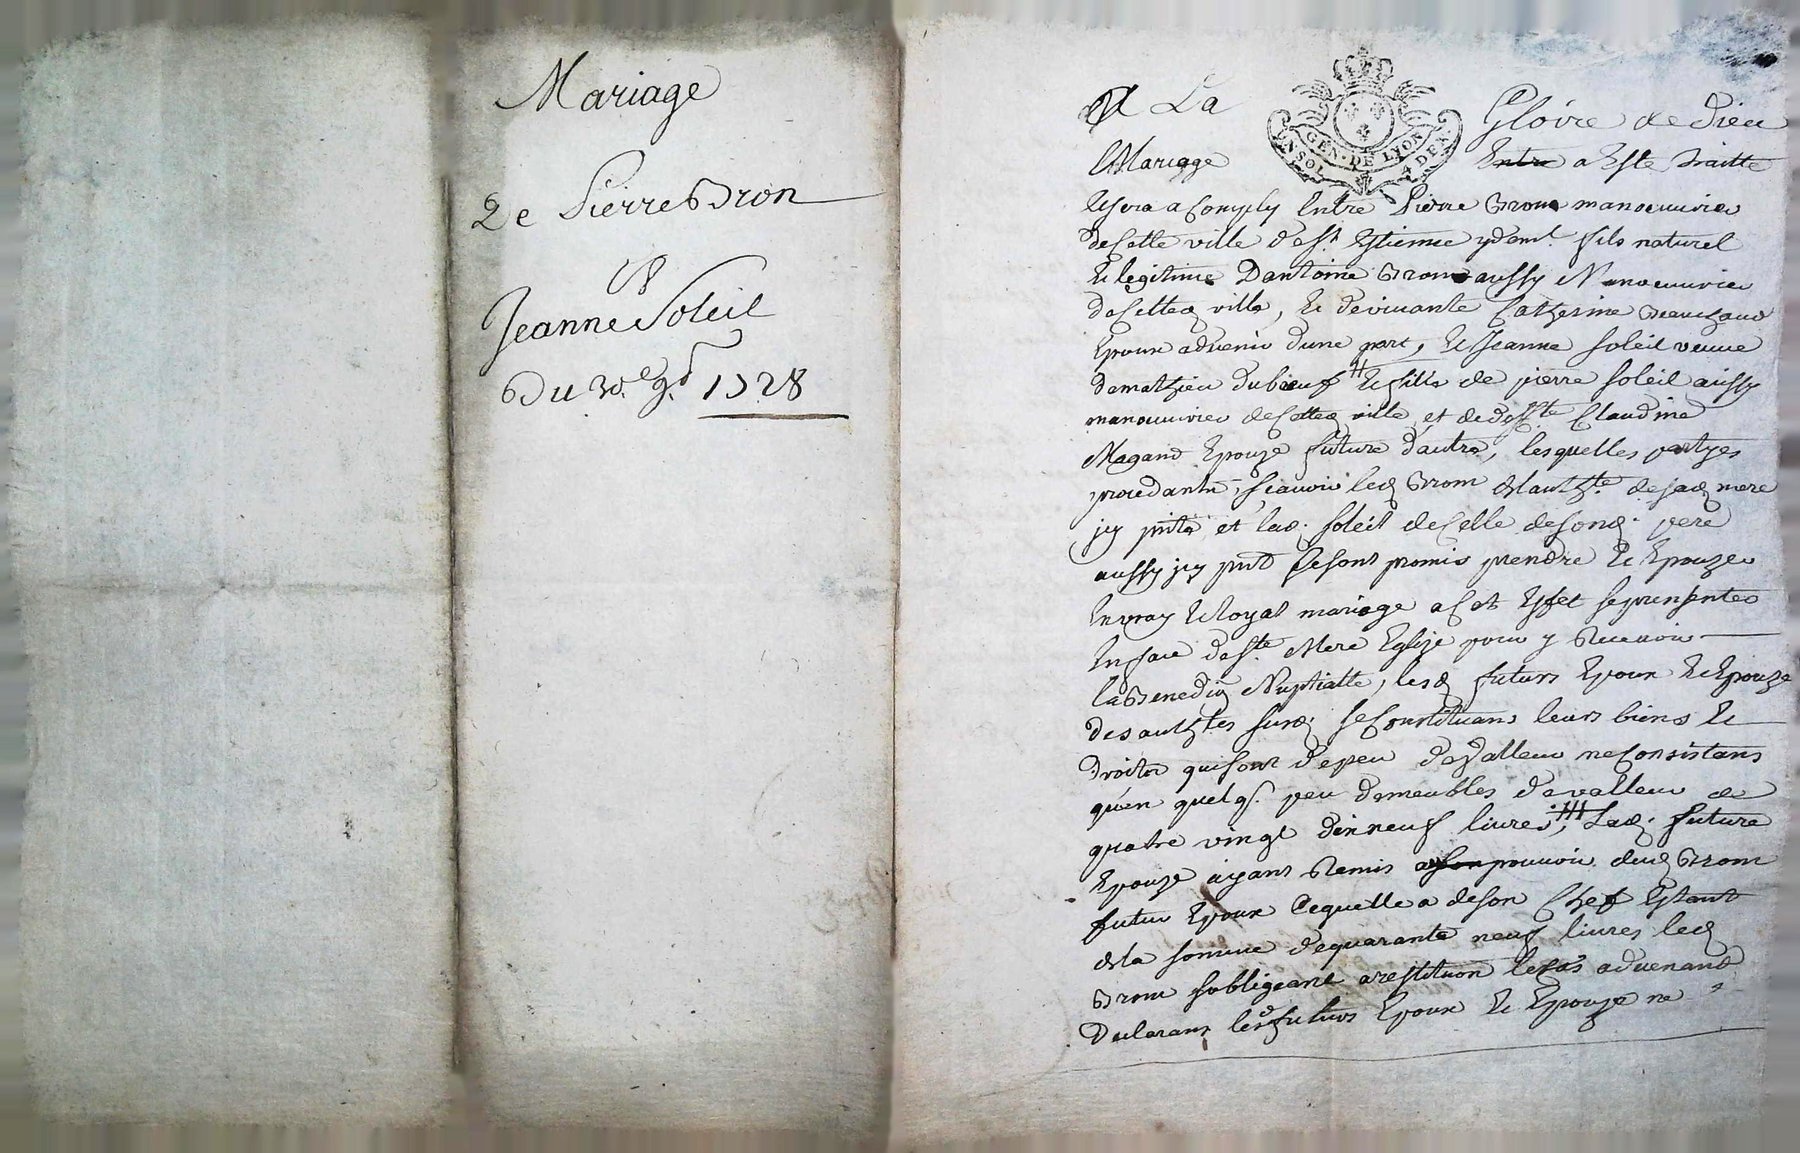 Mariage
De Pierre Bron
&
Jeanne Soleil
Du 30.e 9.b 1728
A La Gloire de Dieu
GEN. DE LYON
UN SOL 4 DEN.
Mariage Entre a Este traitté
Et sera acomply Entre Pierre Bron manoeuvrier
de Cette ville de St Estienne fils naturel
Et legitime D'antoine Bron aussy Manoeuvrier
de cetted ville, Et de vivante Catherine
Epoux advenir d'une part, Et Jeanne Soleil veuve
de mathieu dubœuf Et fille de pierre Soleil aussy
manouvrier de Cetted ville, et de deffte Claudine
Magand Epouze future d'autre, lesquelles partyes
procedants, sçavoir led Bron de lauthte de sad mere
jcy pnte et lad. Soleil de Celle de sond. pere
aussy jcy pnt se sont promis prendre Et Epouzer
En vray Et loyal mariage a Cet Effet se presenter
En face de Ste Mere Eglize pour y Recevoir
la Benedion Nuptialle, lesd futurs Epoux Et Epouze
des authtes susd. se Constituans leurs biens Et
Droits qui sont de peu de valleur ne Consistans
qu'en quelq. peu de meubles de valleur de
quatre vingt dix neuf livres, Lad. future
Epouze ayans Remis au pouvoir dud Bron
futur Epoux Ce quelle a de son Chef Estant
de la somme de quarante neuf livres led
Bron sobligeant a restitution le Cas advenant
Declarans lesd futurs Epoux Et Epouze ne